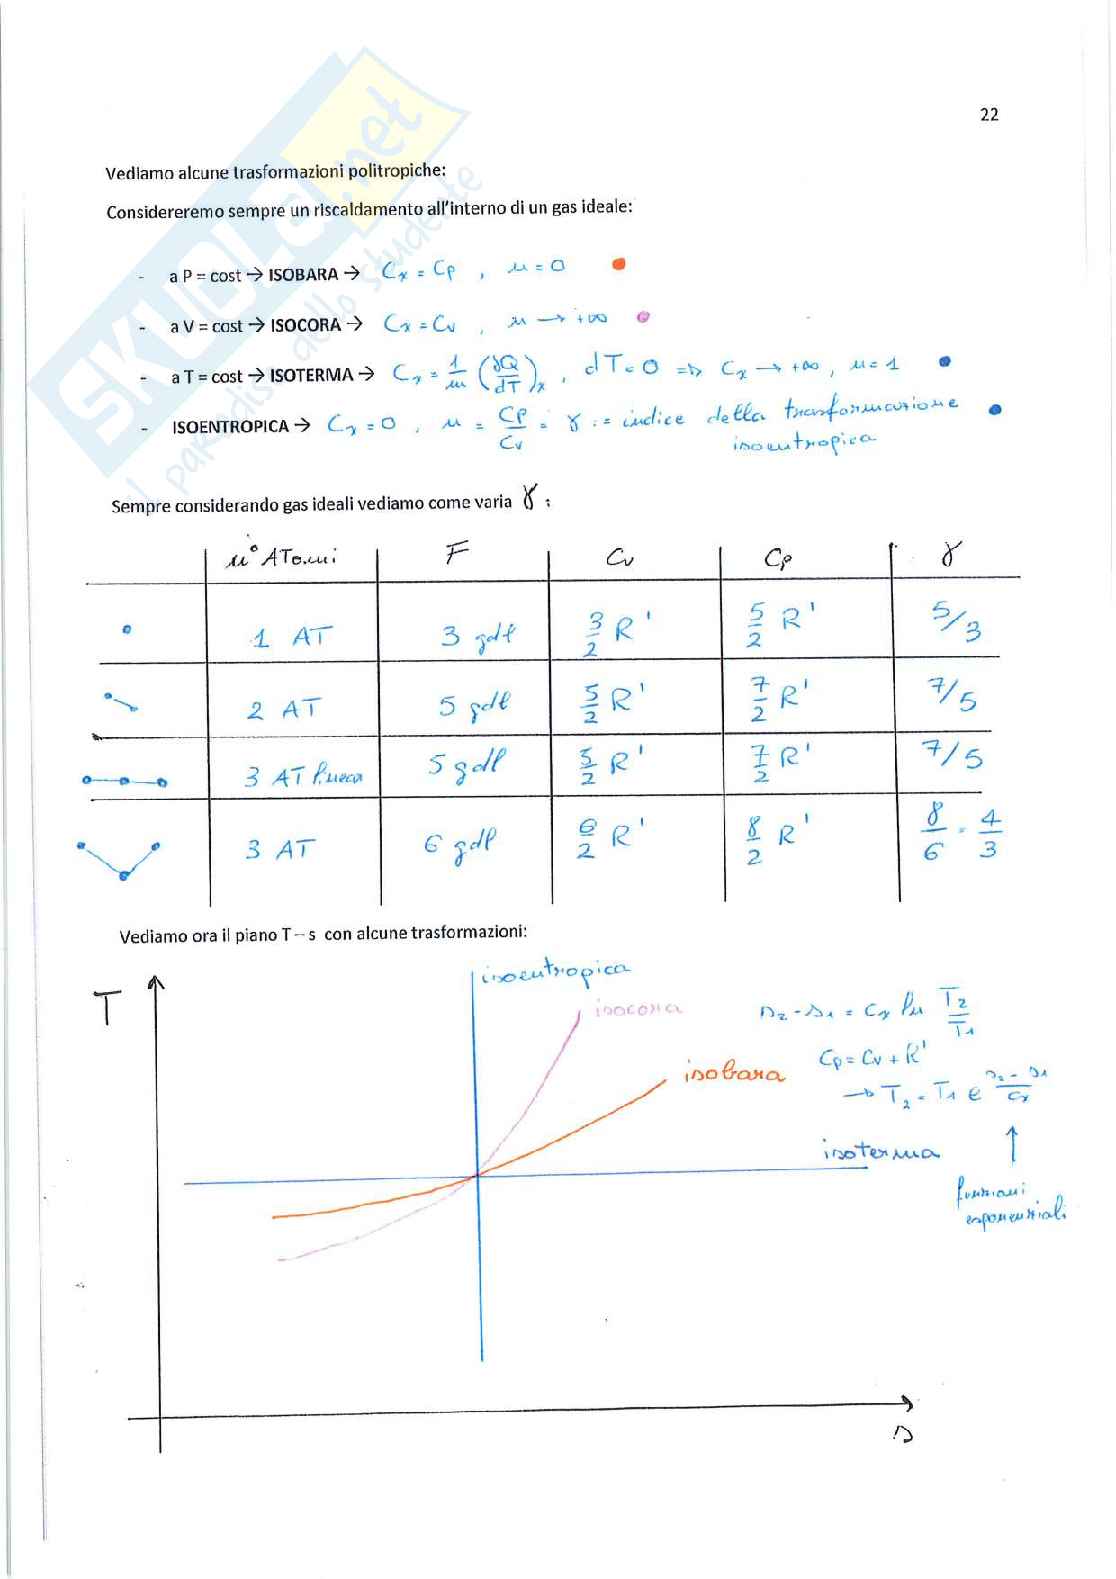 22
SKUOLA.net
il paradiso dello studente
Vediamo alcune trasformazioni politropiche:
Considereremo sempre un riscaldamento all'interno di un gas ideale:
- a P = cost → ISOBARA → Cx = Cp , n = 0
- a V = cost → ISOCORA → Cx = Cv , n → +∞
- a T = cost → ISOTERMA → Cx = 1/m (∂Q/dT)x , dT = 0 => Cx → +∞, n = 1
- ISOENTROPICA → Cx = 0 , n = Cp/Cv = γ := indice della trasformazione
isoentropica
Sempre considerando gas ideali vediamo come varia γ :
n° ATomi F Cv Cp γ
1 AT 3 gdl 3/2 R' 5/2 R' 5/3
2 AT 5 gdl 5/2 R' 7/2 R' 7/5
3 AT linear 5 gdl 5/2 R' 7/2 R' 7/5
3 AT 6 gdl 6/2 R' 8/2 R' 8/6 = 4/3
Vediamo ora il piano T – s con alcune trasformazioni:
T
isoentropica
isocora
isobara
isoterma
s2 - s1 = Cx ln T2/T1
Cp = Cv + R'
→ T2 = T1 e^(s2 - s1)/Cx
↑
funzioni
esponenziali
s